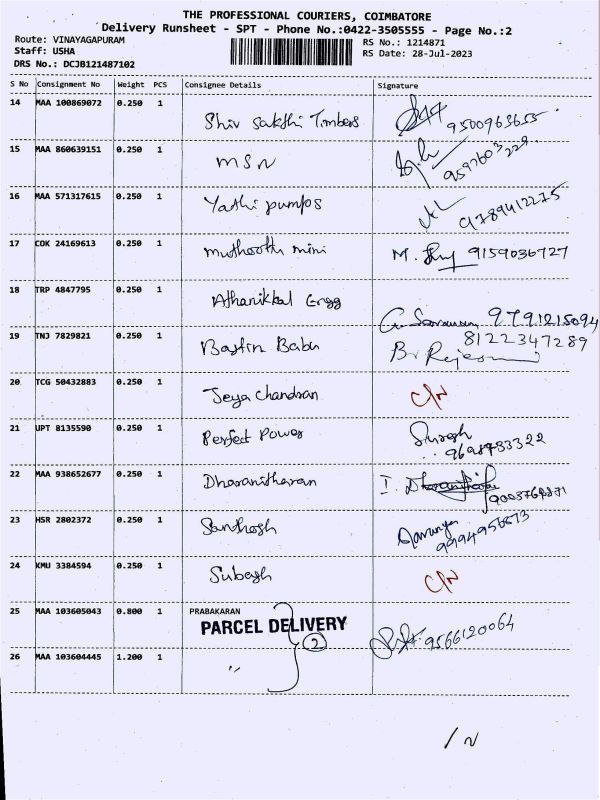 THE PROFESSIONAL COURIERS, COIMBATORE
Delivery Runsheet - SPT - Phone No.:0422-3505555 - Page No.:2
Route: VINAYAGAPURAM RS No.: 1214871
Staff: USHA RS Date: 28-Jul-2023
DRS No.: DCJB121487102
S No Consignment No Weight PCS Consignee Details Signature
14 MAA 100869072 0.250 1 Shiv Sakthi Timbers
15 MAA 860639151 0.250 1 MSN
16 MAA 571317615 0.250 1 Yathi pumps 9789412275
17 COK 24169613 0.250 1 muthooth mini M. 9159036727
18 TRP 4847795 0.250 1 Athanikkal Engg 9791215094
19 TNJ 7829821 0.250 1 Bastin Babu 8122347289
20 TCG 50432883 0.250 1 Jeya Chandran C/N
21 UPT 8135590 0.250 1 Perfect Power Suresh
22 MAA 938652677 0.250 1 Dharanitharan
23 HSR 2802372 0.250 1 Santhosh
24 KMU 3384594 0.250 1 Subash C/N
25 MAA 103605043 0.800 1 PRABAKARAN
PARCEL DELIVERY
2
9566120064
26 MAA 103604445 1.200 1 "
/ N